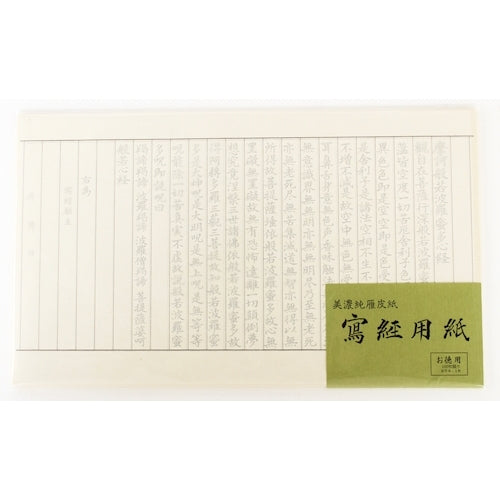 摩訶般若波羅蜜多心経
觀自在菩薩行深般若波羅蜜
蘊皆空度一切苦厄舍利子色
異色色即是空空即是色受
是舍利子是諸法空相不生不
不增不減是故空中無色無
耳鼻舌身意無色声香味触法
無意識界無無明亦無無明尽乃至無老死
亦無老死尽無苦集滅道無智亦無得以無
所得故菩提薩埵依般若波羅蜜多故心無
罣礙無罣礙故無有恐怖遠離一切顛倒夢
想究竟涅槃三世諸佛依般若波羅蜜多故
得阿耨多羅三藐三菩提故知般若波羅蜜
多是大神呪是大明呪是無上呪是無等等
呪能除一切苦真實不虚故説般若波羅蜜
多呪即説呪曰
羯諦羯諦 波羅羯諦 波羅僧羯諦 菩提薩婆訶
般若心経
右為
美濃純雁皮紙
寫経用紙
お徳用